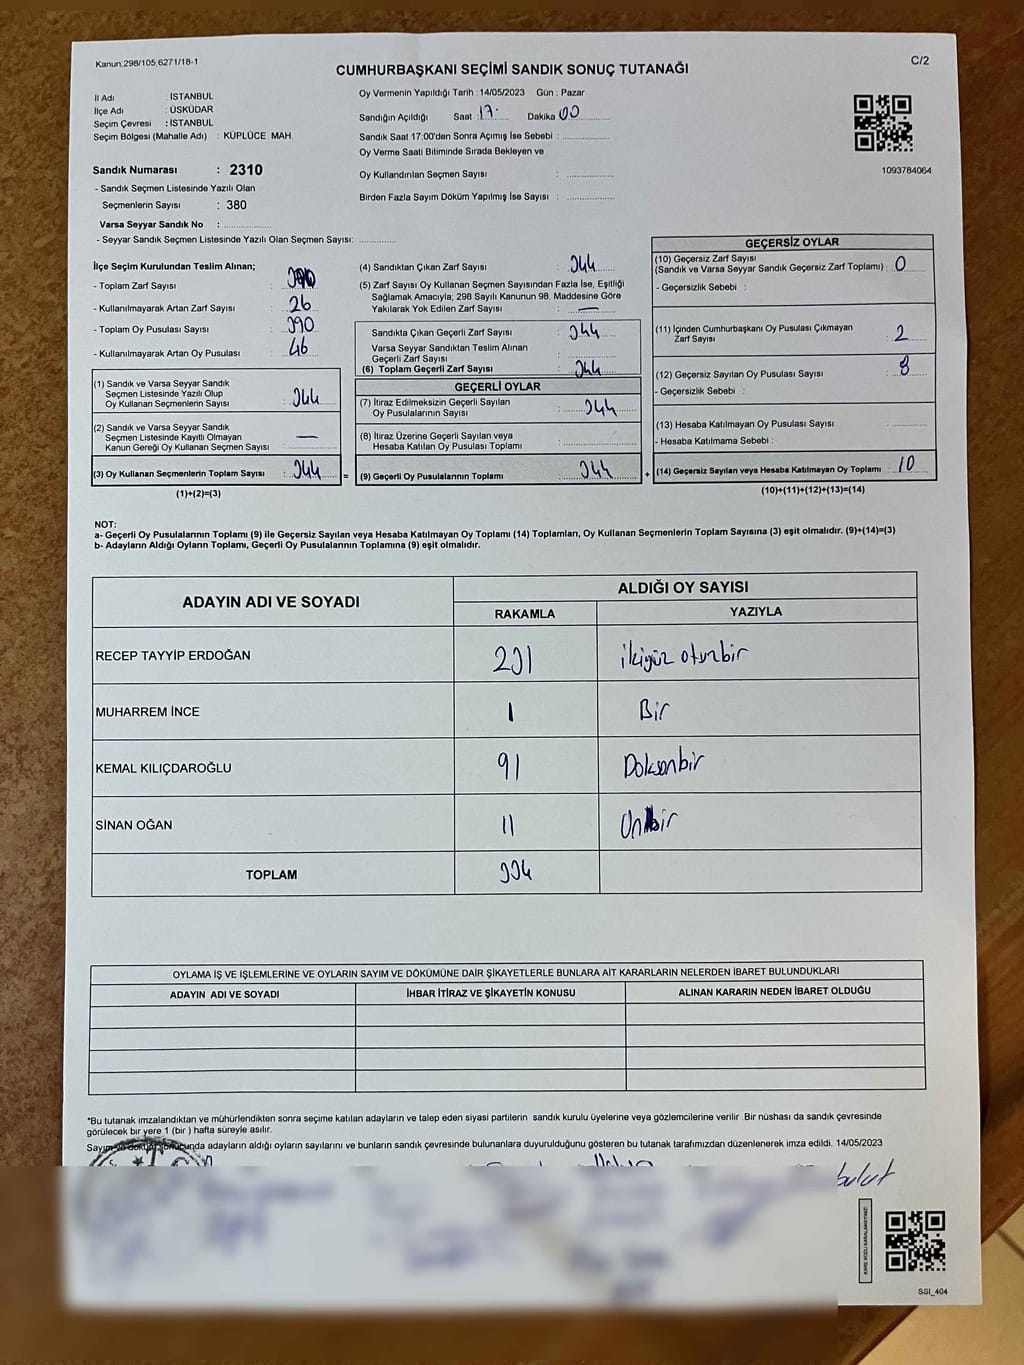 Kanun,298/105,6271/18-1
C/2
CUMHURBAŞKANI SEÇİMİ SANDIK SONUÇ TUTANAĞI
İl Adı : İSTANBUL
İlçe Adı : ÜSKÜDAR
Seçim Çevresi : İSTANBUL
Seçim Bölgesi (Mahalle Adı) : KÜPLÜCE MAH.
Sandık Numarası : 2310
- Sandık Seçmen Listesinde Yazılı Olan
Seçmenlerin Sayısı : 380
Varsa Seyyar Sandık No :
- Seyyar Sandık Seçmen Listesinde Yazılı Olan Seçmen Sayısı:
Oy Vermenin Yapıldığı Tarih :14/05/2023 Gün : Pazar
Sandığın Açıldığı Saat : 17 Dakika : 00
Sandık Saat 17:00'den Sonra Açımış İse Sebebi :
Oy Verme Saati Bitiminde Sırada Bekleyen ve
Oy Kullandırılan Seçmen Sayısı :
Birden Fazla Sayım Döküm Yapılmış İse Sayısı :
1093784064
İlçe Seçim Kurulundan Teslim Alınan;
- Toplam Zarf Sayısı :
- Kullanılmayarak Artan Zarf Sayısı : 26
- Toplam Oy Pusulası Sayısı : 390
- Kullanılmayarak Artan Oy Pusulası : 46
(1) Sandık ve Varsa Seyyar Sandık
Seçmen Listesinde Yazılı Olup
Oy Kullanan Seçmenlerin Sayısı : 344
(2) Sandık ve Varsa Seyyar Sandık
Seçmen Listesinde Kayıtlı Olmayan
Kanun Gereği Oy Kullanan Seçmen Sayısı : —
(3) Oy Kullanan Seçmenlerin Toplam Sayısı : 344 =
(1)+(2)=(3)
(4) Sandıktan Çıkan Zarf Sayısı : 344
(5) Zarf Sayısı Oy Kullanan Seçmen Sayısından Fazla İse, Eşitliği
Sağlamak Amacıyla; 298 Sayılı Kanunun 98. Maddesine Göre
Yakılarak Yok Edilen Zarf Sayısı : —
Sandıkta Çıkan Geçerli Zarf Sayısı : 344
Varsa Seyyar Sandıktan Teslim Alınan
Geçerli Zarf Sayısı :
(6) Toplam Geçerli Zarf Sayısı : 344
GEÇERLİ OYLAR
(7) İtiraz Edilmeksizin Geçerli Sayılan
Oy Pusulalarının Sayısı : 344
(8) İtiraz Üzerine Geçerli Sayılan veya
Hesaba Katılan Oy Pusulası Toplamı :
(9) Geçerli Oy Pusulalarının Toplamı : 344 +
GEÇERSİZ OYLAR
(10) Geçersiz Zarf Sayısı
(Sandık ve Varsa Seyyar Sandık Geçersiz Zarf Toplamı) : 0
- Geçersizlik Sebebi :
(11) İçinden Cumhurbaşkanı Oy Pusulası Çıkmayan
Zarf Sayısı : 2
(12) Geçersiz Sayılan Oy Pusulası Sayısı : 8
- Geçersizlik Sebebi :
(13) Hesaba Katılmayan Oy Pusulası Sayısı :
- Hesaba Katılmama Sebebi :
(14) Geçersiz Sayılan veya Hesaba Katılmayan Oy Toplamı : 10
(10)+(11)+(12)+(13)=(14)
NOT:
a- Geçerli Oy Pusulalarının Toplamı (9) ile Geçersiz Sayılan veya Hesaba Katılmayan Oy Toplamı (14) Toplamları, Oy Kullanan Seçmenlerin Toplam Sayısına (3) eşit olmalıdır. (9)+(14)=(3)
b- Adayların Aldığı Oyların Toplamı, Geçerli Oy Pusulalarının Toplamına (9) eşit olmalıdır.
ADAYIN ADI VE SOYADI
ALDIĞI OY SAYISI
RAKAMLA YAZIYLA
RECEP TAYYİP ERDOĞAN 231 ikiyüz otuzbir
MUHARREM İNCE 1 Bir
KEMAL KILIÇDAROĞLU 91 Doksanbir
SİNAN OĞAN 11 Onbir
TOPLAM 334
OYLAMA İŞ VE İŞLEMLERİNE VE OYLARIN SAYIM VE DÖKÜMÜNE DAİR ŞİKAYETLERLE BUNLARA AİT KARARLARIN NELERDEN İBARET BULUNDUKLARI
ADAYIN ADI VE SOYADI İHBAR İTİRAZ VE ŞİKAYETİN KONUSU ALINAN KARARIN NEDEN İBARET OLDUĞU
*Bu tutanak imzalandıktan ve mühürlendikten sonra seçime katılan adayların ve talep eden siyasi partilerin sandık kurulu üyelerine veya gözlemcilerine verilir. Bir nüshası da sandık çevresinde
görülecek bir yere 1 (bir ) hafta süreyle asılır.
Sayım ve döküm sonucunda adayların aldığı oyların sayılarını ve bunların sandık çevresinde bulunanlara duyurulduğunu gösteren bu tutanak tarafımızdan düzenlenerek imza edildi. 14/05/2023
bulut
SSI_404